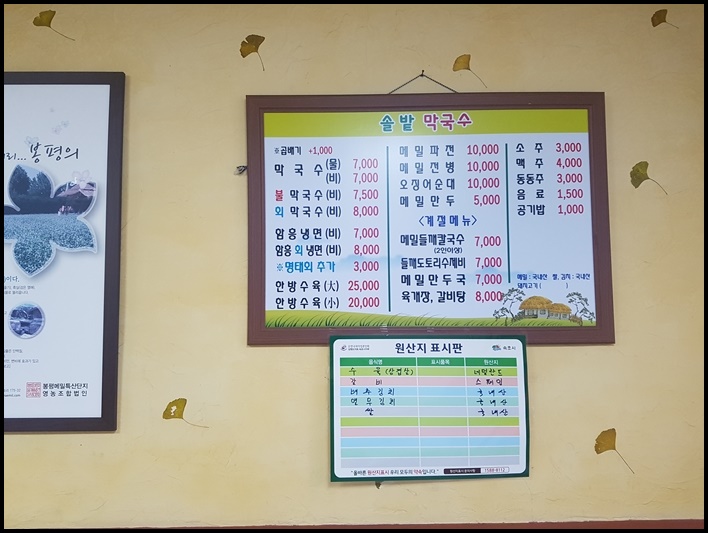 봉평의
봉평메밀특산단지
영농조합법인
솔밭 막국수
※곱배기 +1,000
막국수 (물) 7,000
(비) 7,000
불 막국수 (비) 7,500
회 막국수 (비) 8,000
함흥냉면 (비) 7,000
함흥 회 냉면 (비) 8,000
※명태회 추가 3,000
한방수육 (大) 25,000
한방수육 (小) 20,000
메밀파전 10,000
메밀전병 10,000
오징어순대 10,000
메밀만두 5,000
<계절메뉴>
메밀들깨칼국수 7,000
(2인이상)
들깨도토리수제비 7,000
메밀만두국 7,000
육개장, 갈비탕 8,000
소주 3,000
맥주 4,000
동동주 3,000
음료 1,500
공기밥 1,000
메밀 : 국내산 쌀, 김치 : 국내산
돼지고기 ( )
원산지 표시판
속초시
음식명 표시품목 원산지
수육(삼겹살) 네덜란드
갈비 스페인
배추김치 국내산
열무김치 국내산
쌀 국내산
"올바른 원산지표시 우리 모두의 약속입니다."
1588-8112